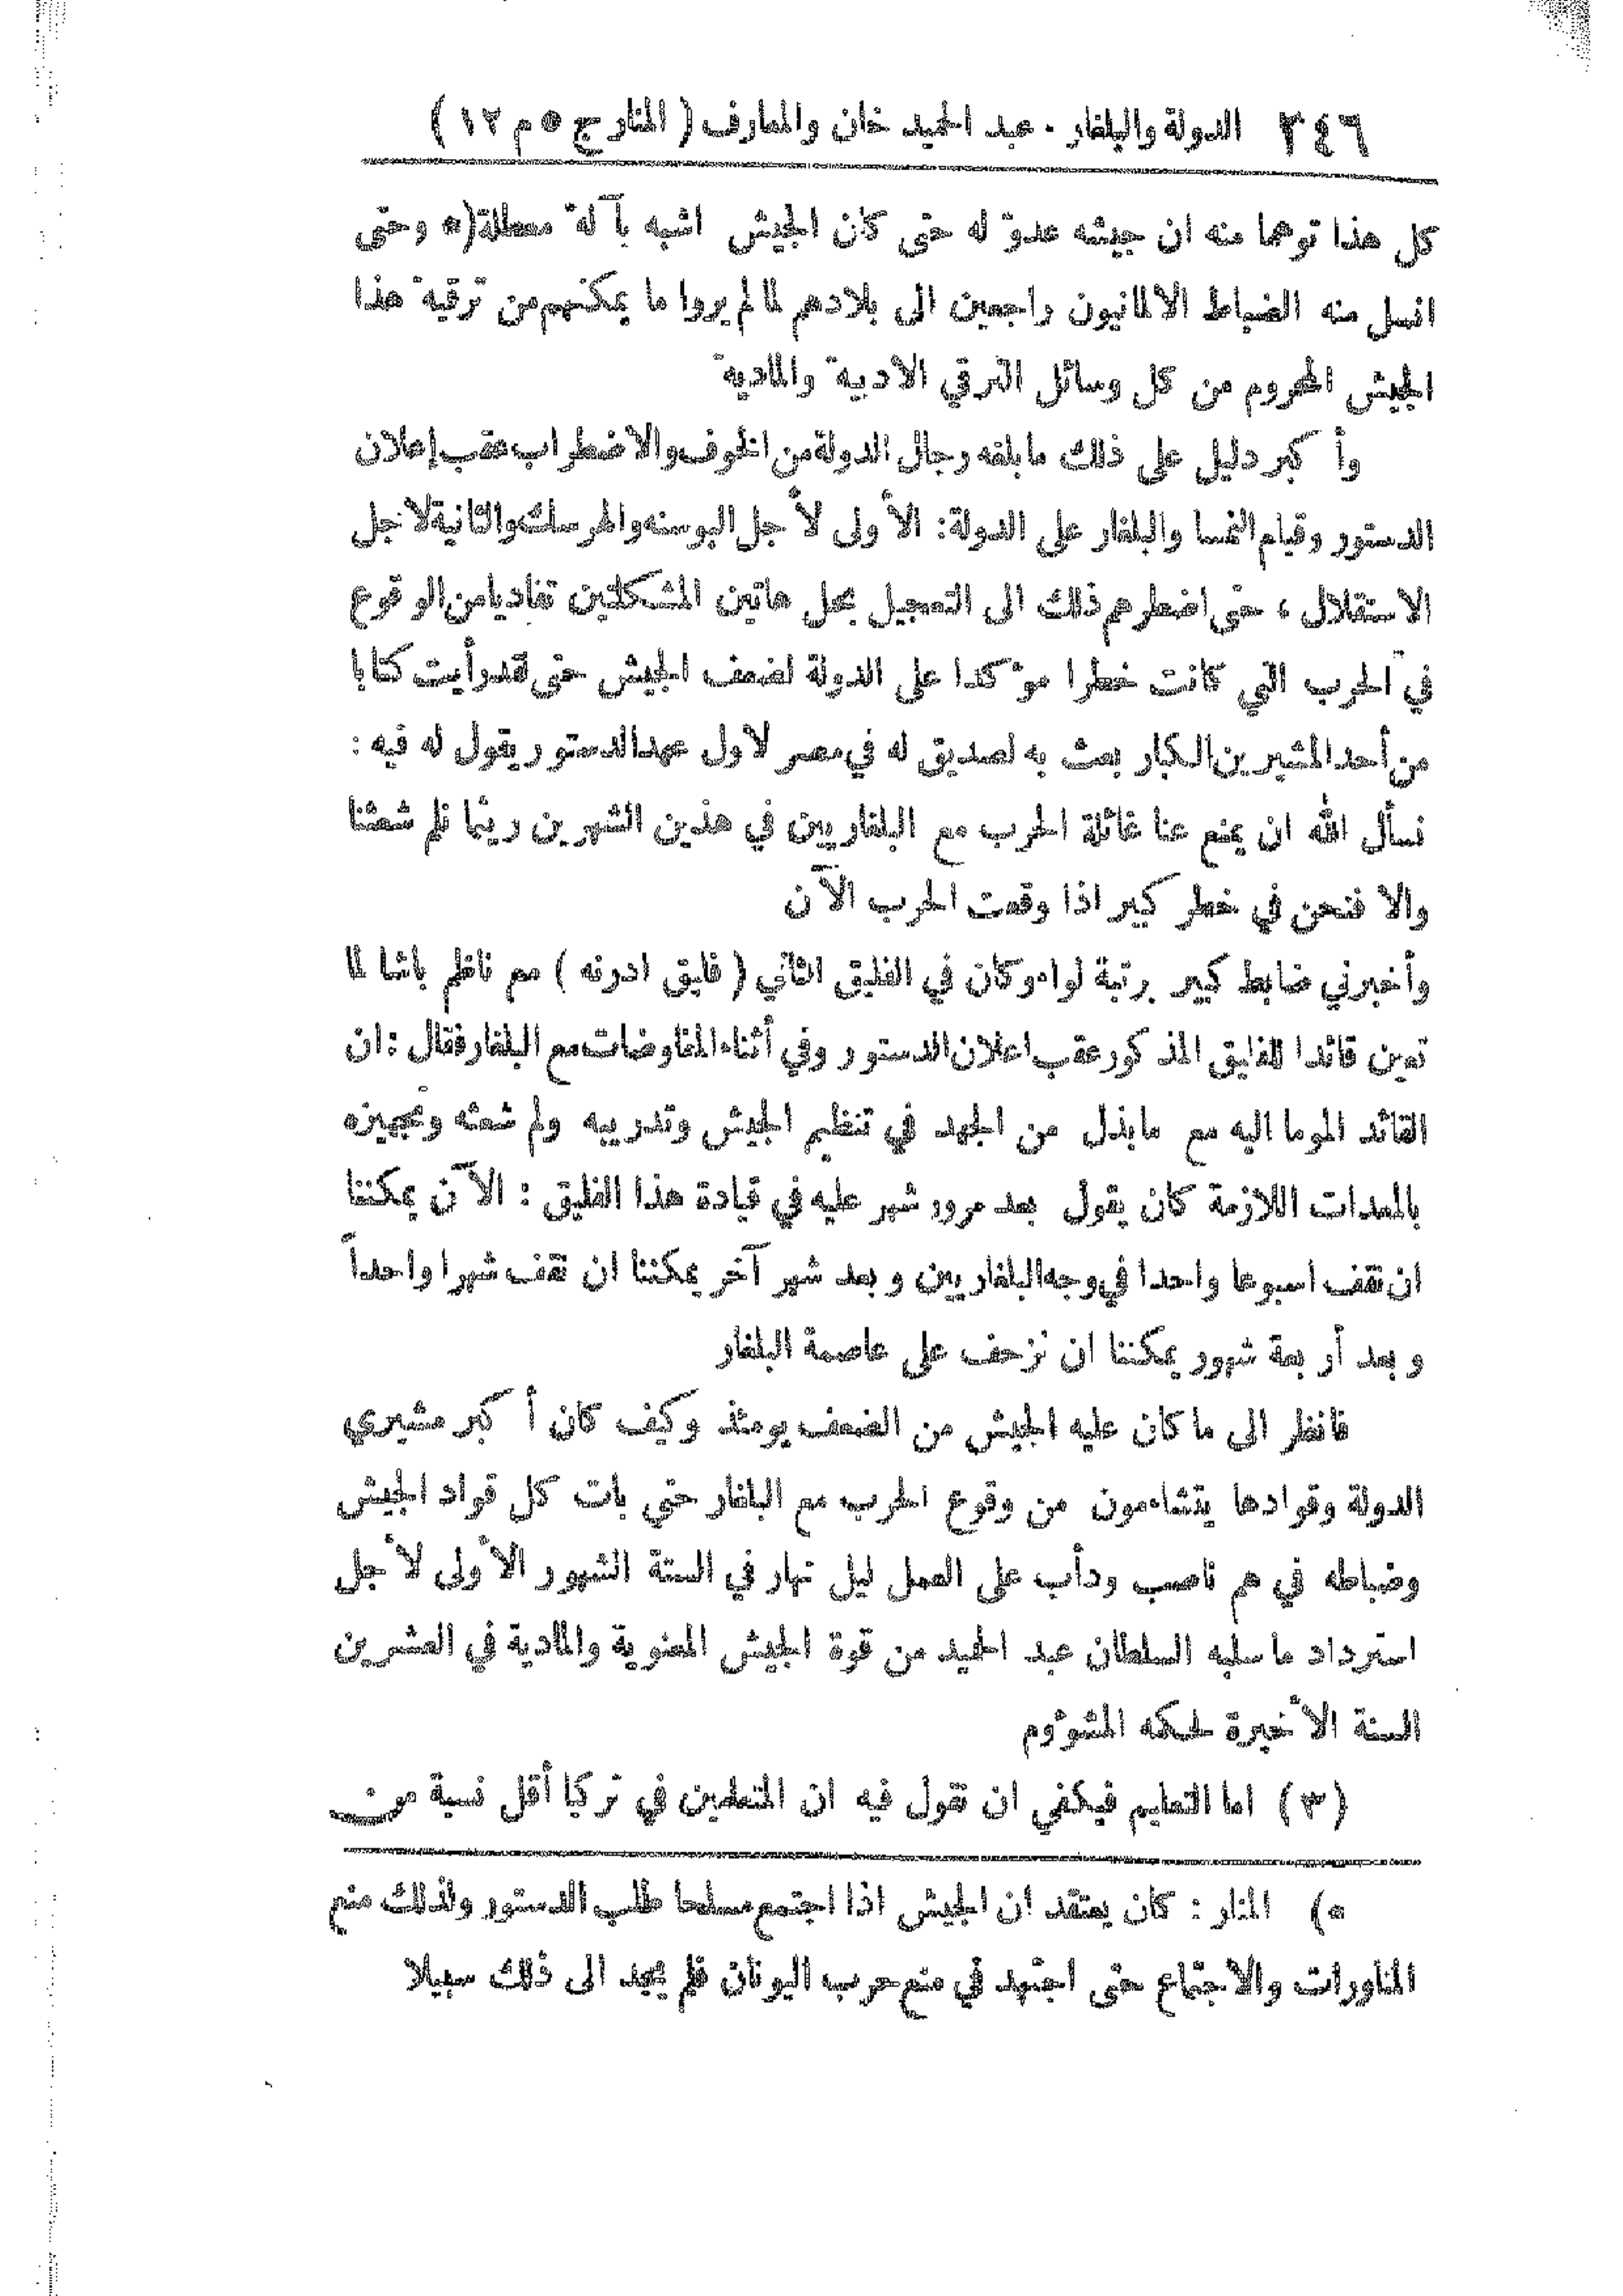 ٣٤٦ الدولة والبلغار . عبد الحميد خان والمعارف ( المنار ج ٥ م ١٢ )
كل هذا توهما منه ان جيشه عدوّ له حتى كان الجيش اشبه بآلة معطلة(* وحتى
انسل منه الضباط الالمانيون راجعين الى بلادهم لما لم يروا ما يمكنهم من ترقية هذا
الجيش المحروم من كل وسائل الترقي الادبية والمادية
وأ كبر دليل على ذلك ما بلغه رجال الدولة من الخوف والاضطراب عقب إعلان
الدستور وقيام النمسا والبلغار على الدولة: الأولى لأجل البوسنه والهرسك والثانية لاجل
الاستقلال ، حتى اضطرهم ذلك الى التعجيل بحل هاتين المشكلتين تفاديا من الوقوع
في الحرب التي كانت خطرا مؤكدا على الدولة لضعف الجيش حتى لقد رأيت كتابا
من أحد المشيرين الكبار بعث به لصديق له في مصر لاول عهد الدستور يقول له فيه :
نسأل الله ان يمنع عنا غائلة الحرب مع البلغاريين في هذين الشهرين ريثما نلم شعثنا
والا فنحن في خطر كبير اذا وقعت الحرب الآن
وأخبرني ضابط كبير برتبة لواء وكان في الفليق الثاني ( فليق ادرنه ) مع ناظم باشا لما
تعين قائدا للفليق المذكور عقب اعلان الدستور وفي أثناء المفاوضات مع البلغار فقال : ان
القائد الموما اليه مع مابذل من الجهد في تنظيم الجيش وتدريبه ولم شعثه وتجهيزه
بالمعدات اللازمة كان يقول بعد مرور شهر عليه في قيادة هذا الفليق : الآن يمكننا
ان نقف اسبوعا واحدا في وجه البلغاريين و بعد شهر آخر يمكننا ان نقف شهرا واحداً
و بعد أربعة شهور يمكننا ان نزحف على عاصمة البلغار
فانظر الى ما كان عليه الجيش من الضعف يومئذ وكيف كان أ كبر مشيري
الدولة وقوادها يتشاءمون من وقوع الحرب مع البلغار حتى بات كل قواد الجيش
وضباطه في هم ناصب ودأب على العمل ليل نهار في الستة الشهور الأولى لأجل
استرداد ما سلبه السلطان عبد الحميد من قوة الجيش المعنوية والمادية في العشرين
السنة الأخيرة لحكمه المشؤوم
(٣) اما التعليم فيكفي ان نقول فيه ان المتعلمين في تركيا أقل نسبة من
*) المنار : كان يعتقد ان الجيش اذا اجتمع مسلحا طلب الدستور ولذلك منع
المناورات والاجتماع حتى اجتهد في منع حرب اليونان فلم يجد الى ذلك سبيلا